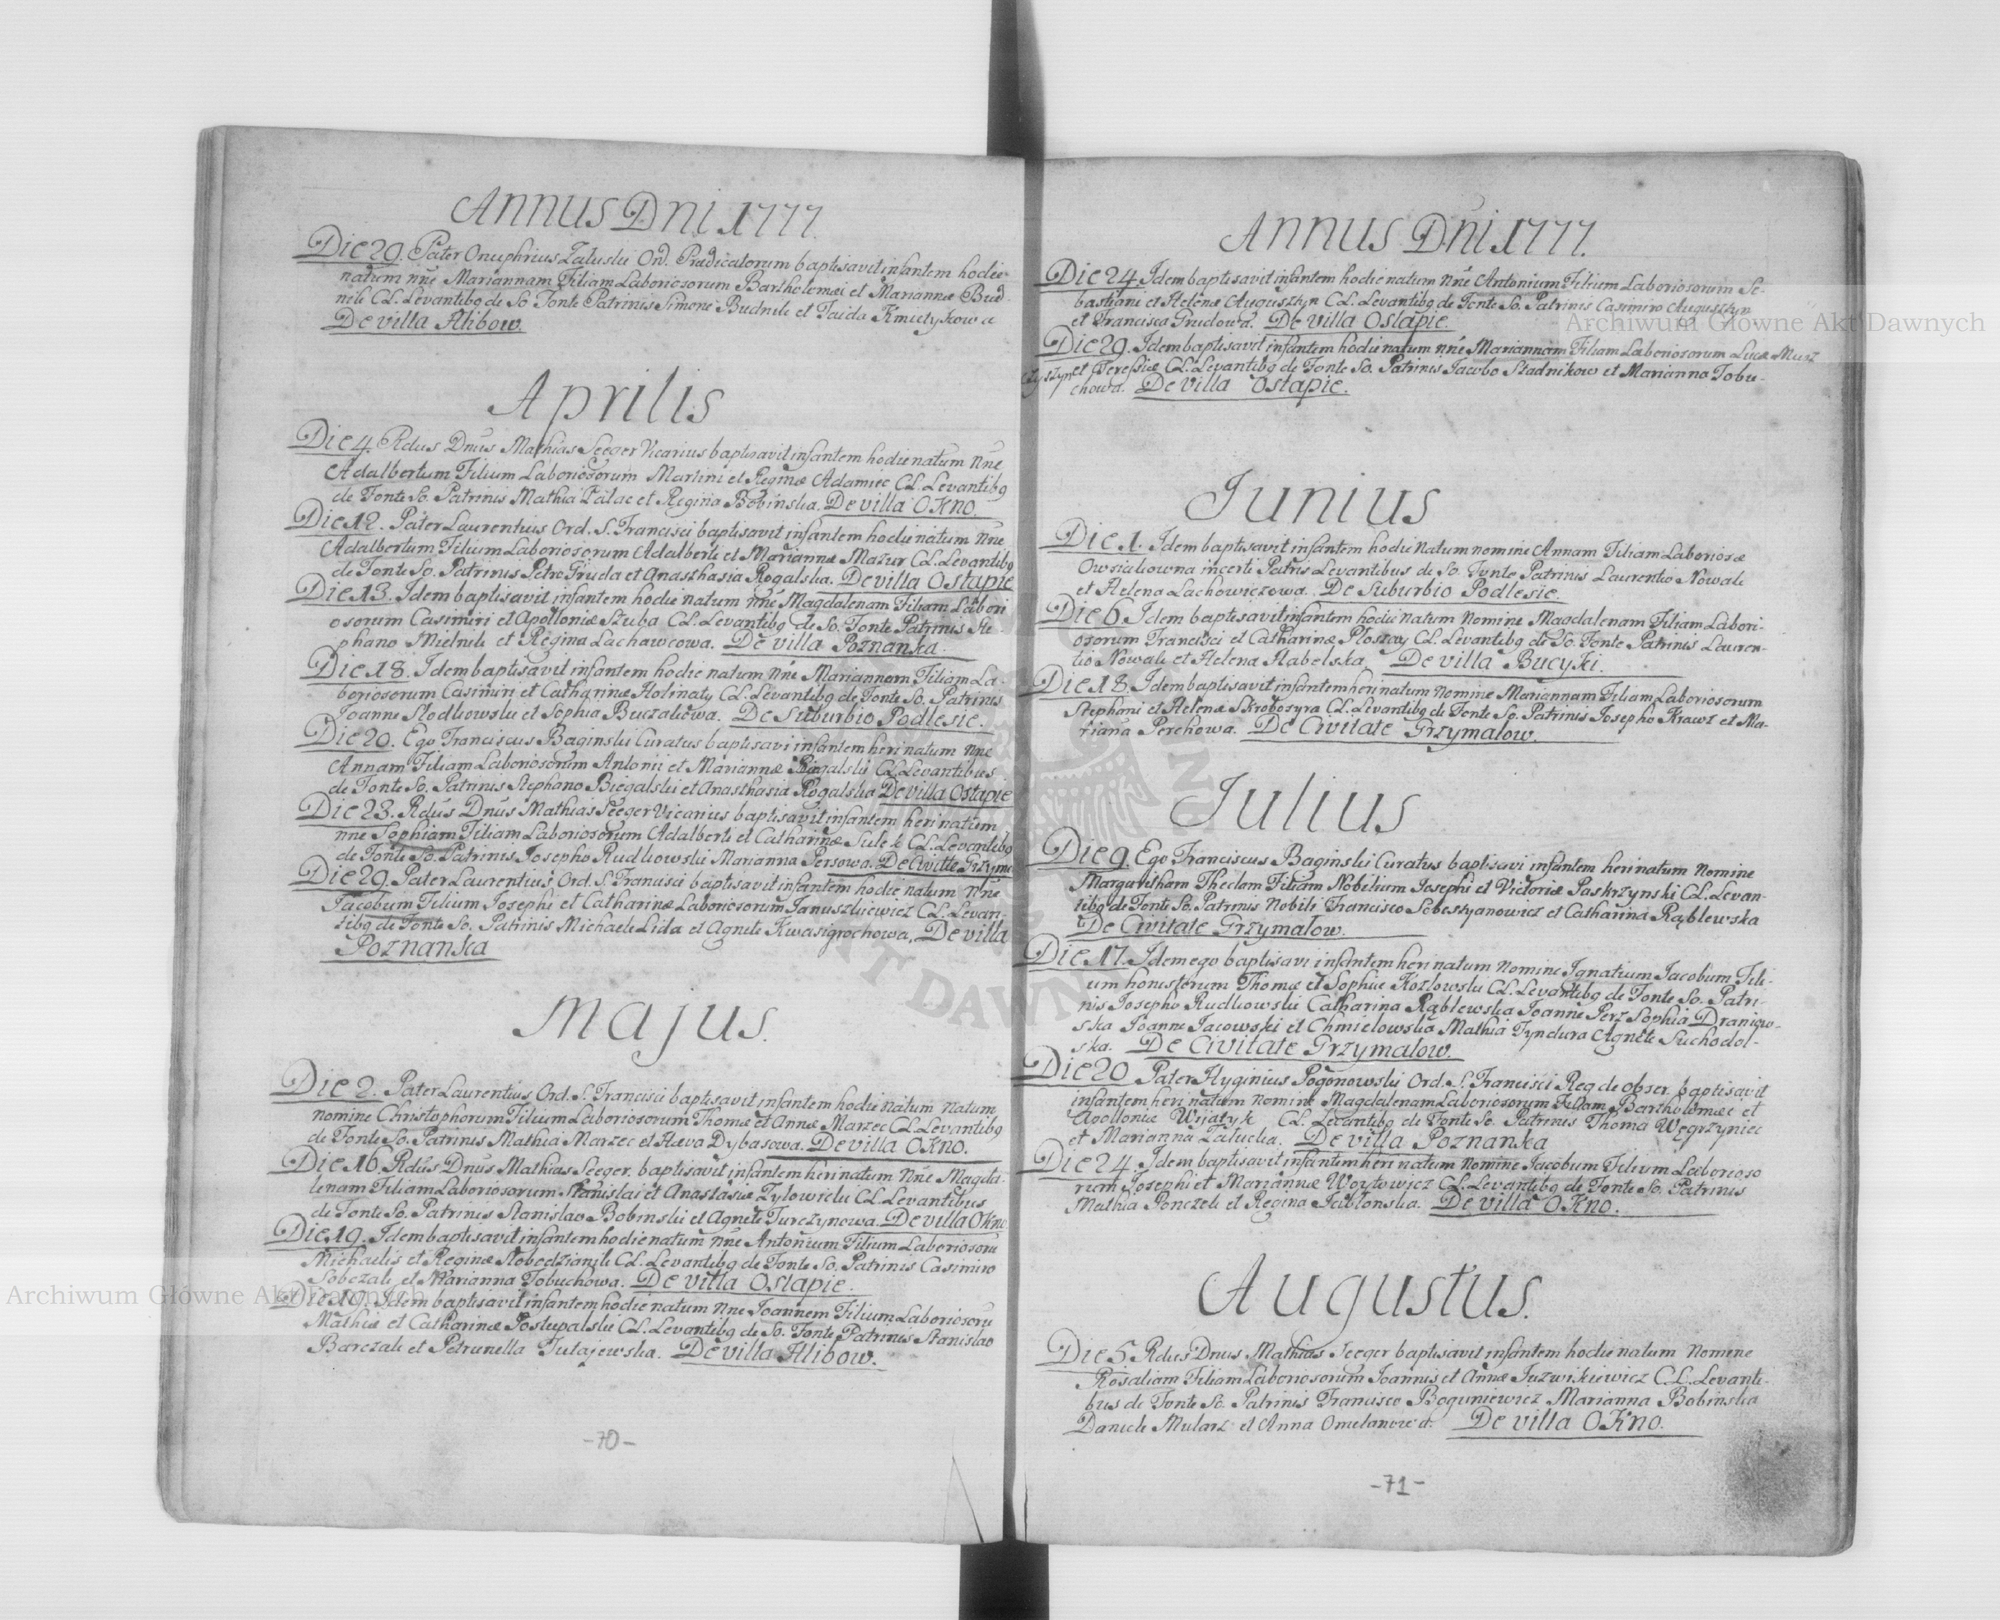 Annus Dni 1777.
Die 29. Pater Onuphrius Zaluski Ord. Prædicatorum baptisavit infantem hodie
natum nñe Mariannam Filiam Laboriosorum Bartholomæi et Mariannæ Bud-
nik CL. Levantibq de So Fonte Patrinis Simone Budnik et
De villa Hlibow.
Aprilis
Die 4. Rdus Dnus Mathias Seeger Vicarius baptisavit infantem hodie natum Nñe
Adalbertum Filium Laboriosorum Martini et Reginæ Adamiec CL. Levantibq
de Fonte So. Patrinis Mathia Palac et Regina Bobinska. De villa OKno.
Die 12. Pater Laurentius Ord. S. Francisci baptisavit infantem hodie natum Nñe
Adalbertum Filium Laboriosorum Adalberti et Mariannæ Mazur CL. Levantibq
de Fonte So. Patrinis Petro Gruda et Anasthasia Rogalska. De villa Ostapie
Die 13. Idem baptisavit infantem hodie natum nñe Magdalenam Filiam Labori
osorum Casimiri et Apolloniæ Szuba CL. Levantibq de So. Fonte Patrinis Ste-
phano Mielnik et Regina Lachawcowa. De villa Poznanka.
Die 18. Idem baptisavit infantem hodie natum nñe Mariannam Filiam La-
boriosorum Casimiri et Catharinæ Holinaty CL. Levantibq de Fonte So. Patrinis
Joanne Slodkowski et Sophia Buczakowa. De Suburbio Podlesie.
Die 20. Ego Franciscus Baginski Curatus baptisavi infantem heri natum nñe
Annam Filiam Laboriosorum Antonii et Mariannæ Biegalski CL. Levantibus
de Fonte So. Patrinis Stephano Biegalski et Anasthasia Rogalska De villa Ostapie
Die 23. Rdus Dnus Mathias Seeger Vicarius baptisavit infantem heri natum
nñe Sophiam Filiam Laboriosorum Adalberti et Catharinæ Sulek CL. Levantibq
de Fonte So. Patrinis Josepho Rudkowski Marianna Persowa. De Civitte Grzyma
Die 29. Pater Laurentius Ord. S. Francisci baptisavit infantem hodie natum Nñe
Jacobum Filium Josephi et Catharinæ Laboriosorum Januszkiewicz CL. Levan-
tibq de Fonte So. Patrinis Michaele Lida et Agnete Kwasigrochowa, De villa
Poznanka
Majus.
Die 2. Pater Laurentius Ord. S. Francisci baptisavit infantem hodie natum natum
nomine Christophorum Filium Laboriosorum Thomæ et Annæ Marzec CL. Levantibq
de Fonte So. Patrinis Mathia Marzec et Hæva Dybasowa. De villa OKno.
Die 16. Rdus Dnus Mathias Seeger. baptisavit infantem heri natum Nñe Magda-
lenam Filiam Laboriosorum Stanislai et Anastasiæ Zylowicki CL. Levantibus
de Fonte So. Patrinis Stanislao Bobinski et Agnete Turczynowa. De villa OKno.
Die 19. Idem baptisavit infantem hodie natum nñe Antonium Filium Laboriosoru
Michaelis et Reginæ Slobodzianik CL. Levantibq de Fonte So. Patrinis Casimiro
Sobczak et Marianna Tobuchowa. De villa Ostapie.
Die 19. Idem baptisavit infantem hodie natum nñe Joannem Filium Laboriosoru
Mathiæ et Catharinæ Postupalski CL. Levantibq de So. Fonte Patrinis Stanislao
Barczak et Petrunella Tutajewska. De villa Hlibow.
-70-
Annus Dni 1777.
Die 24. Idem baptisavit infantem hodie natum nñe Antonium Filium Laboriosorum Se-
bastiani et Helenæ Augusztyn CL. Levantibq de Fonte So. Patrinis Casimiro Augusztyn
et Francisca Grudowa. De villa Ostapie.
Die 29. Idem baptisavit infantem hodie natum nñe Mariannam Filiam Laboriosorum Lucæ Musz
czyszyn et Teressiæ CL. Levantibq de Fonte So. Patrinis Jacobo Stadnikow et Marianna Tobu-
chowa. De villa Ostapie.
Junius
Die 1. Idem baptisavit infantem hodie Natum nomine Annam Filiam Laboriosæ
Owsiakowna incerti Patris Levantibus de So. Fonte Patrinis Laurentio Nowak
et Helena Lachowiczowa. De Suburbio Podlesie.
Die 6. Idem baptisavit infantem hodie Natum Nomine Magdalenam Filiam Labori-
osorum Francisci et Catharinæ Ploszay CL. Levantibq de So. Fonte Patrinis Lauren-
tio Nowak et Helena Habelska. De villa Bucyki.
Die 18. Idem baptisavit infantem heri natum nomine Mariannam Filiam Laboriosorum
Stephani et Helenæ Skrobozyra CL. Levantibq de Fonte So. Patrinis Josepho Krawz et Ma-
rianna Perchowa. De Civitate Grzymalow.
Julius
Die 9. Ego Franciscus Baginski Curatus baptisavi infantem heri natum Nomine
Margaritham Theclam Filiam Nobilium Josephi et Victoriæ Paskrzynski CL. Levan-
tibq de Fonte So. Patrinis Nobile Francisco Sebestyanowicz et Catharina Rąblewska
De Civitate Grzymalow.
Die 17. Idem ego baptisavi infantem heri natum nomine Ignatium Jacobum Fili-
um honestorum Thomæ et Sophiæ Kozlowski CL. Levantibq de Fonte So. Patri-
nis Josepho Rudkowski Catharina Rąblewska Joanne Perz Sophia Draniow-
ska Joanne Jacowski et Chmielowska Mathia Tyndura Agnete Suchodol-
ska. De Civitate Grzymalow.
Die 20 Pater Hyginius Pogonowski Ord. S. Francisci Reg de obser. baptisavit
infantem heri natum nomine Magdalenam Laboriosorum Filiam Bartholomæi et
Apolloniæ Wyiatyk CL. Levantibq de Fonte So. Patrinis Thoma Węgrzyniec
et Marianna Zalucka. De villa Poznanka
Die 24. Idem baptisavit infantem heri natum Nomine Jacobum Filium Laborioso
rum Josephi et Mariannæ Woytowicz CL. Levantibq de Fonte So. Patrinis
Mathia Ponczek et Regina Jablonska. De villa OKno.
Augustus.
Die 5 Rdus Dnus Mathias Seeger baptisavit infantem hodie natum Nomine
Rosaliam Filiam Laboriosorum Joannis et Annæ Juzwikiewicz CL. Levanti-
bus de Fonte So. Patrinis Francisco Boguniewicz Marianna Bobinska
Daniele Mularz et Anna Omelanowa. De villa OKno.
-71-
Archiwum Główne Akt Dawnych
Archiwum Główne Akt Dawnych